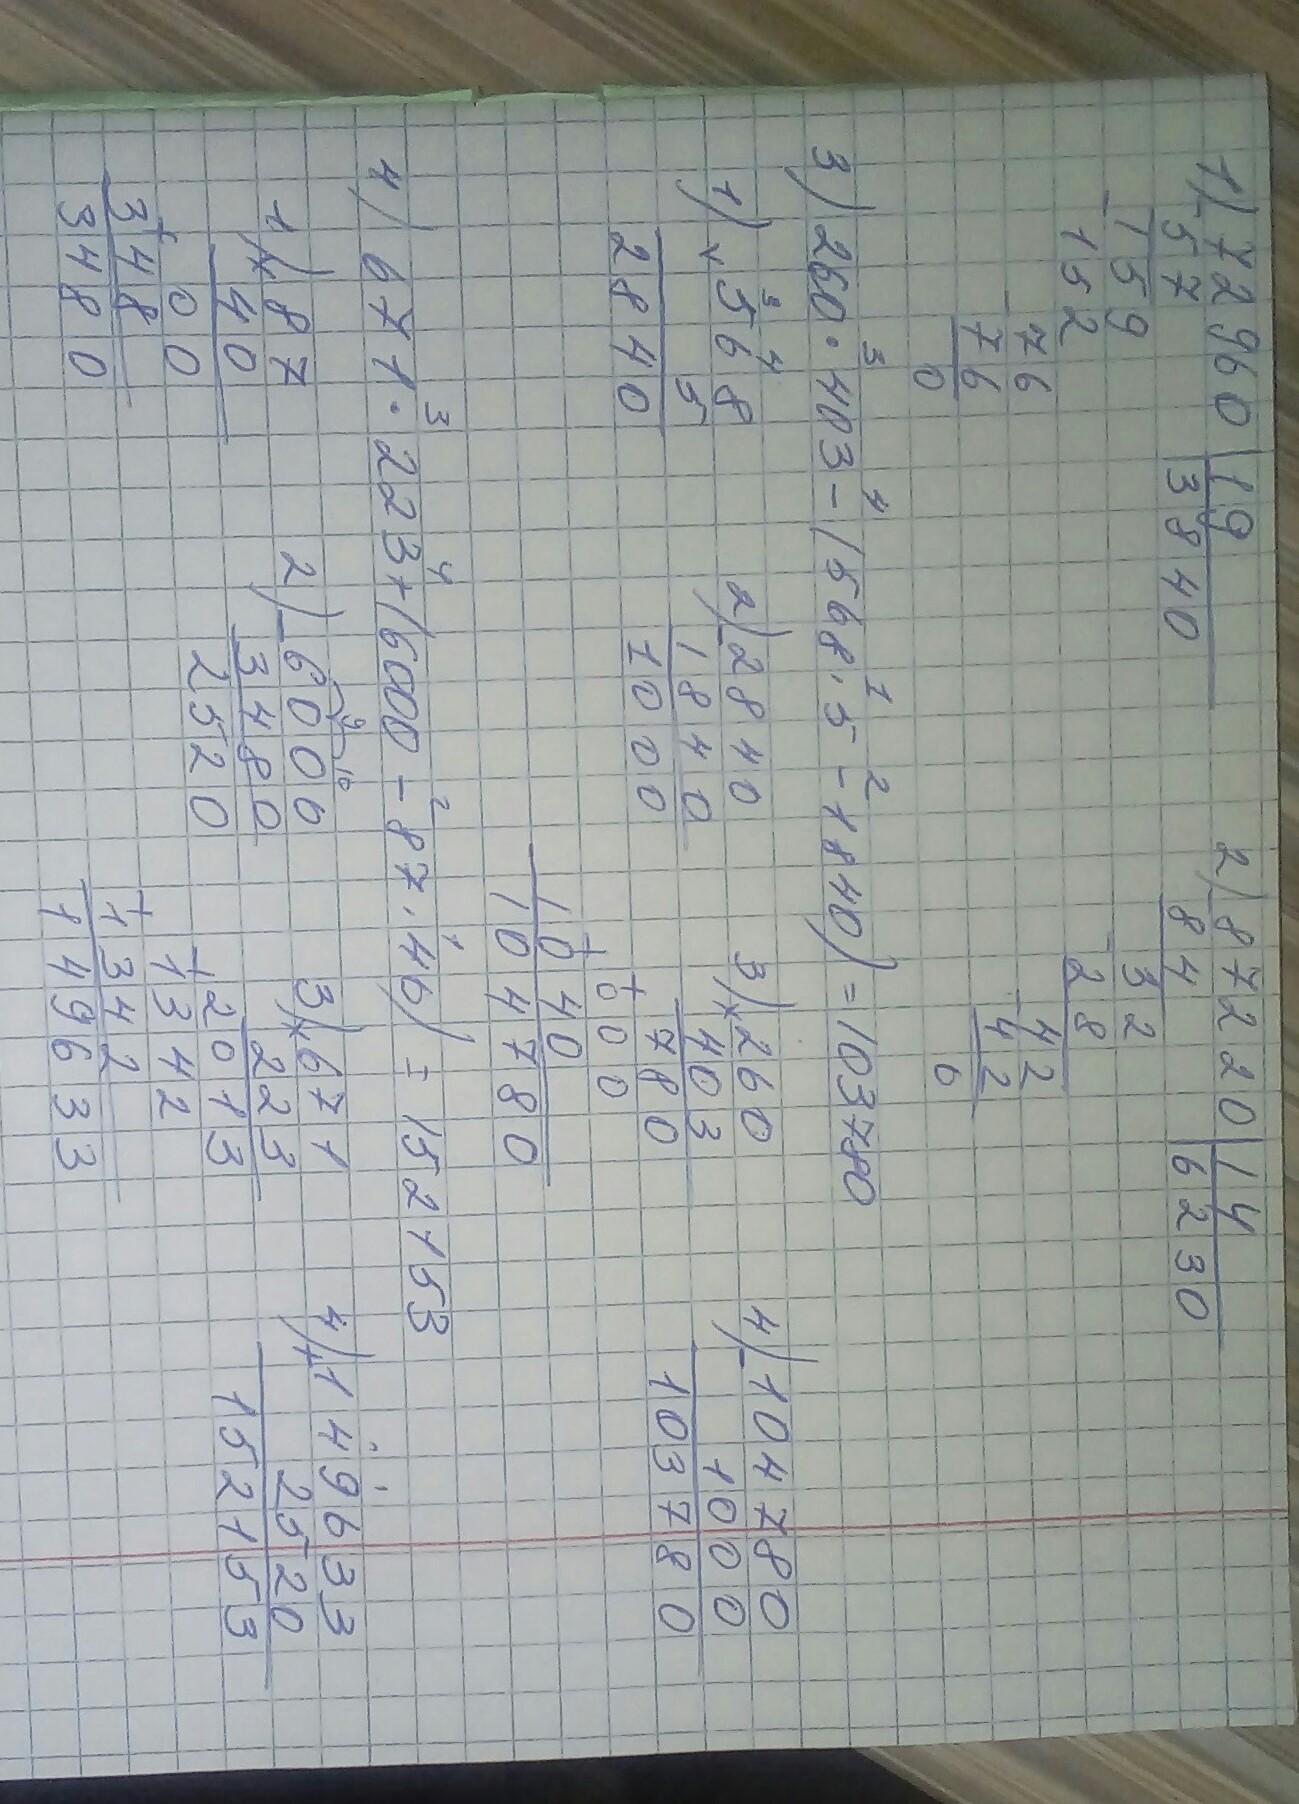 1) 72960 | 19
- 57 3840
- 159
152
- 76
76
0
2) 87220 | 14
- 84 6230
- 32
28
- 42
42
0
3) 260 · 403 - (568 · 5 - 1840) = 103780
3 4 1 2
1) × 568
5
2840
2) - 2840
1840
1000
3) × 260
403
780
+ 000
+ 1040
104780
4) - 104780
1000
103780
4) 671 · 223 + (6000 - 87 · 40) = 152153
3 4 2 1
1) × 87
40
00
+ 348
3480
2) - 6000
3480
2520
3) × 671
223
2013
+ 1342
+ 1342
149633
4) + 149633
2520
152153